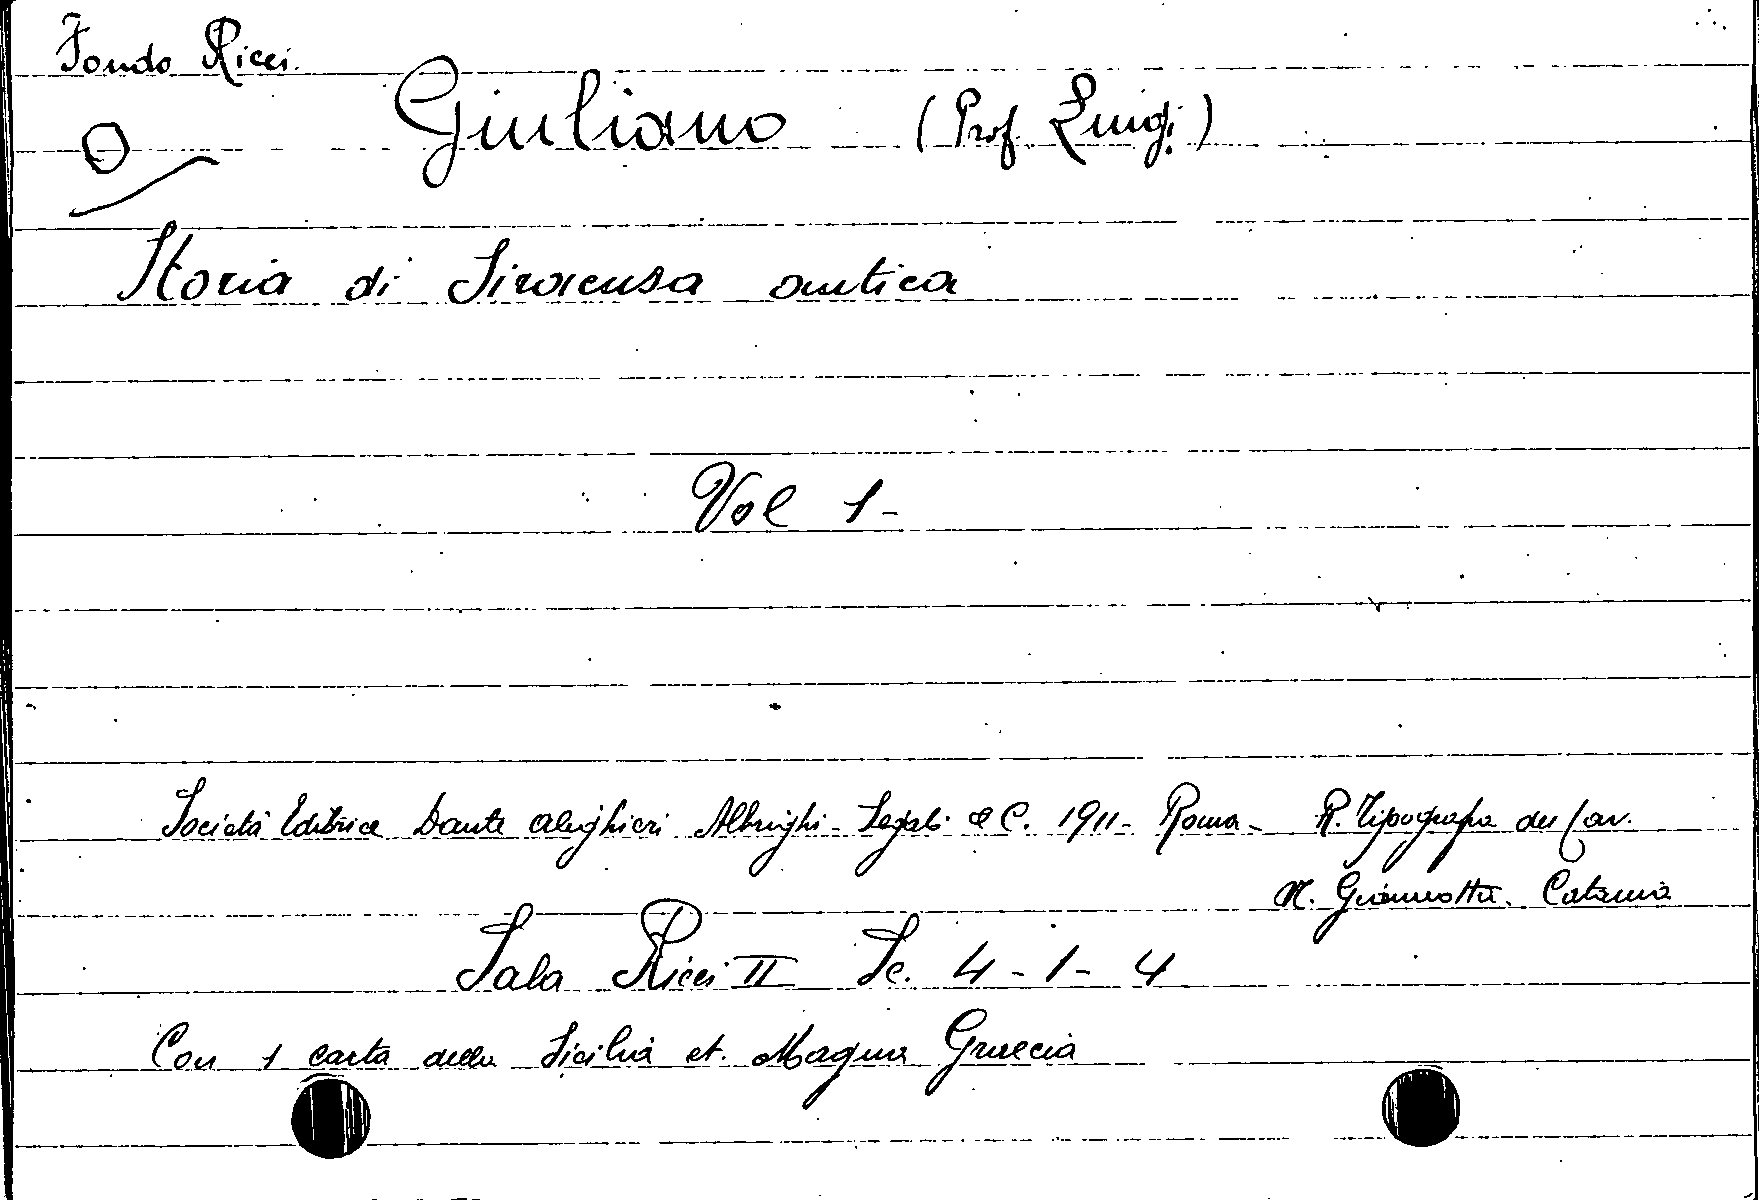 Fondo Ricci.
Giuliano (Prof. Luigi)
Storia di Siracusa antica
Vol 1-
Società Editrice Dante Alighieri Albrighi- Segati & C. 1911- Roma- R. Tipografia del Cav.
N. Giannotta. Catania
Sala Ricci II Sc. 4-1-4
Con 1 carta della Sicilia et. Magna Graecia